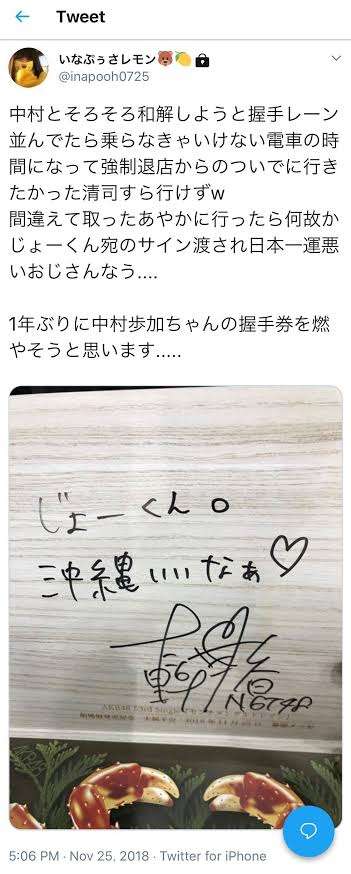 Tweet
いなぷぅさレモン🐻🍋
@inapooh0725
中村とそろそろ和解しようと握手レーン
並んでたら乗らなきゃいけない電車の時
間になって強制退店からのついでに行き
たかった清司すら行けずw
間違えて取ったあやかに行ったら何故か
じょーくん宛のサイン渡され日本一運悪
いおじさんなう....
1年ぶりに中村歩加ちゃんの握手券を燃
やそうと思います.....
じょーくん。
沖縄いいなぁ♡
NGT48
AKB48 53rd Single
5:06 PM · Nov 25, 2018 · Twitter for iPhone